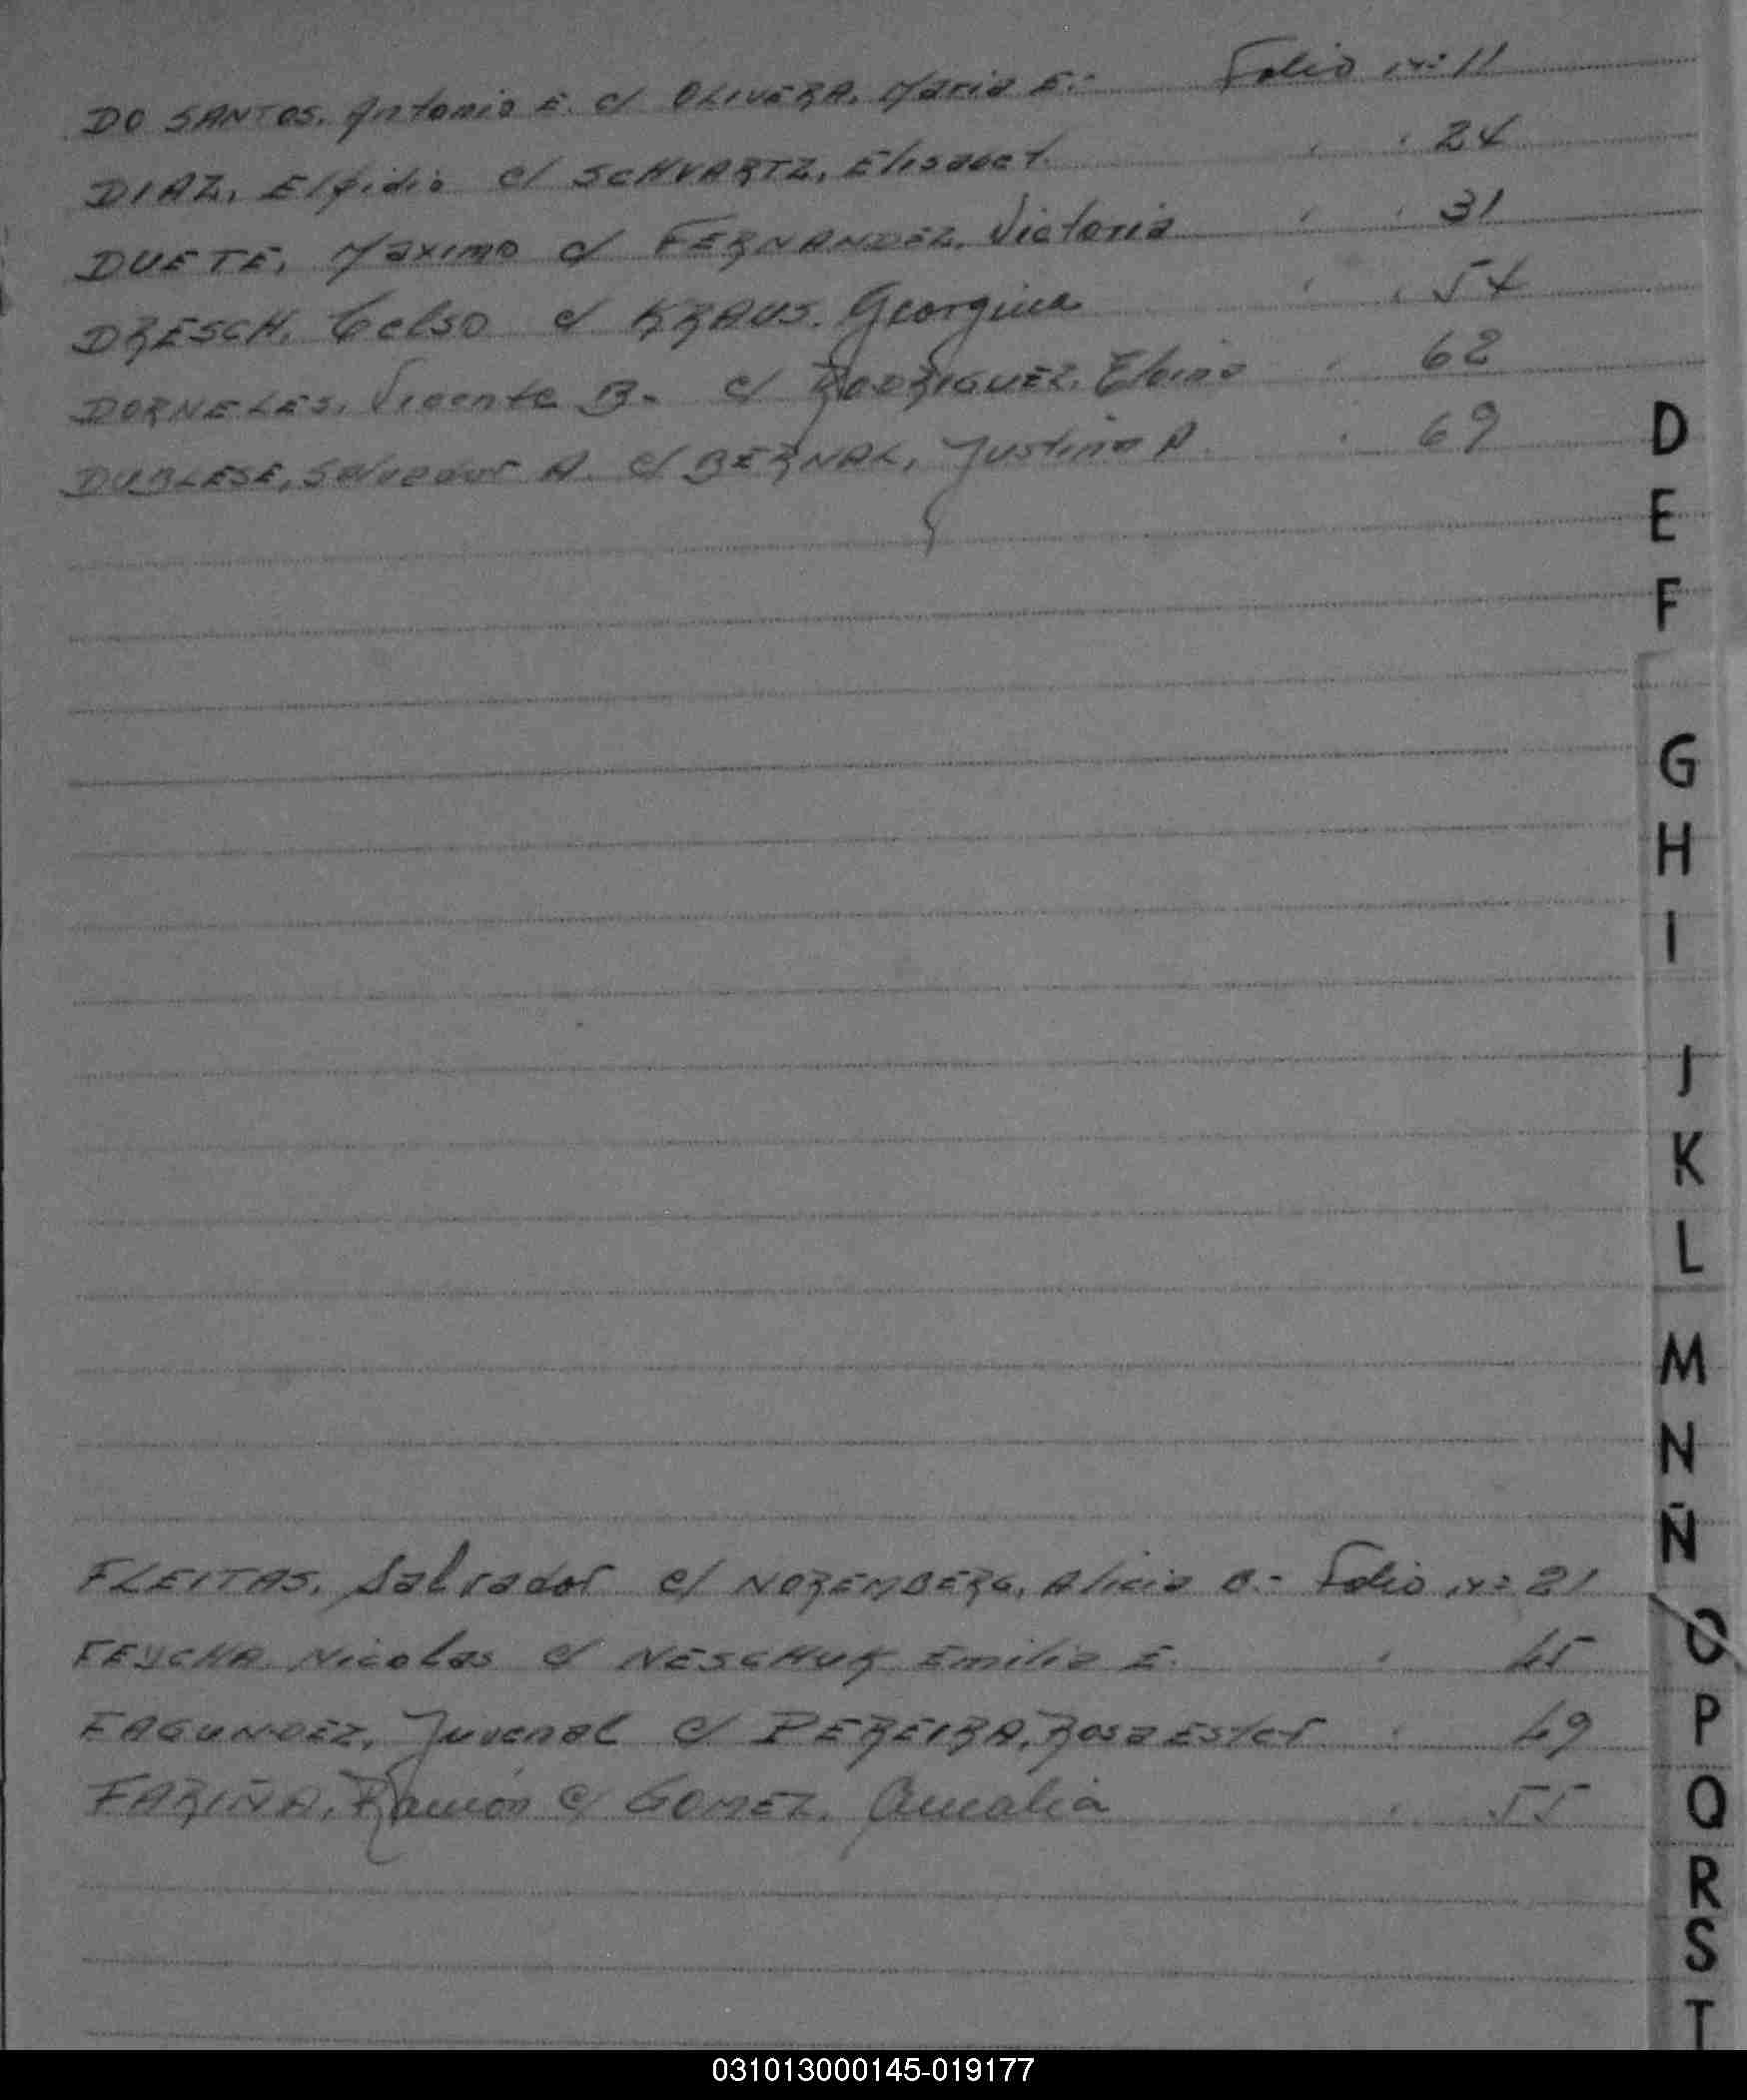 DO SANTOS, Antonio E. c/ OLIVERA, Maria E.- Folio nº 11
DIAZ, Elpidio c/ SCHVARTZ, Elisabet " " 24
DUETE, Maximo c/ FERNANDEZ, Victoria " " 31
DRESCH, Celso c/ KRAUS, Georgina " " 54
DORNELES, Vicente B. c/ RODRIGUEZ, " 62
DUBLESE, Salvador A. c/ BERNAL, Justina A. " 69
D
E
F
G
H
I
J
K
L
M
N
Ñ
FLEITAS, Salvador c/ NOREMBERG, Alicia O.- Folio nº 21
FEYCHA Nicolas c/ NESCHUK Emilia E. " 45
FAGUNDEZ, Juvenal c/ PEREIRA, Rosa Ester " 49
FARIÑA, Ramón c/ GOMEZ, Amalia " 55
O
P
Q
R
S
T
031013000145-019177